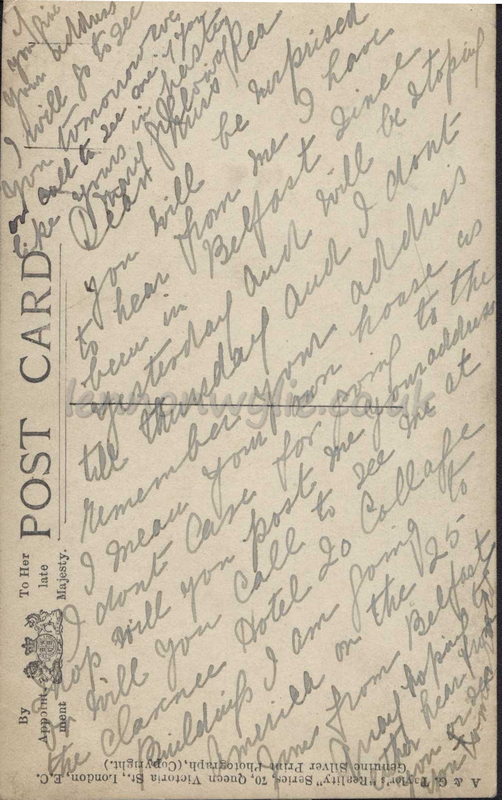 Dear Miss Rea
You will be surprised
to hear from me I have
been in Belfast since
yesterday and will be stoping
till thursday and I dont
remember your address
I mean your own house as
I dont care for going to the
shop will you post me your address
or will you call to see me at
the Clarence Hotel 20 Collage
Buildings I am going to
America on the 25
James from Belfast
Quay hoping to
hear from
you
if
you give
your address
I will go to see
you tomorrow eve
or call to see me if you
like yours in haste
Mary Gilloway
POST CARD
By
Appoint-
ment
To Her
late
Majesty.
A & G. Taylor's "Reality" Series, 70, Queen Victoria St., London, E.C.
Genuine Silver Print Photograph, (Copyright.)